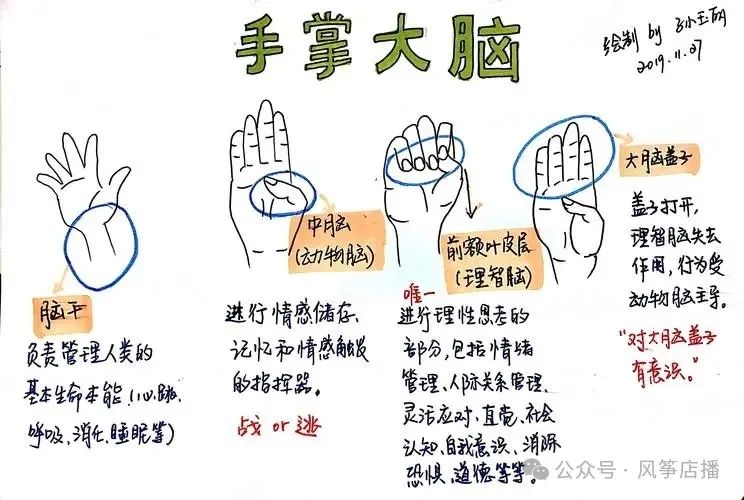 手掌大脑
绘制 by 孙小玉丽
2019.11.07
脑干
负责管理人类的
基本生命本能(心跳、
呼吸、消化、睡眠等)
中脑
(动物脑)
进行情感储存、
记忆和情感触发
的指挥器。
战 or 逃
前额叶皮层
(理智脑)
唯一
进行理性思考的
部分,包括情绪
管理、人际关系管理、
灵活应对、直觉、社会
认知、自我意识、消除
恐惧、道德等等。
大脑盖子
盖子打开,
理智脑失去
作用,行为受
动物脑主导。
"对大脑盖子
有意识。"
公众号·风筝店播